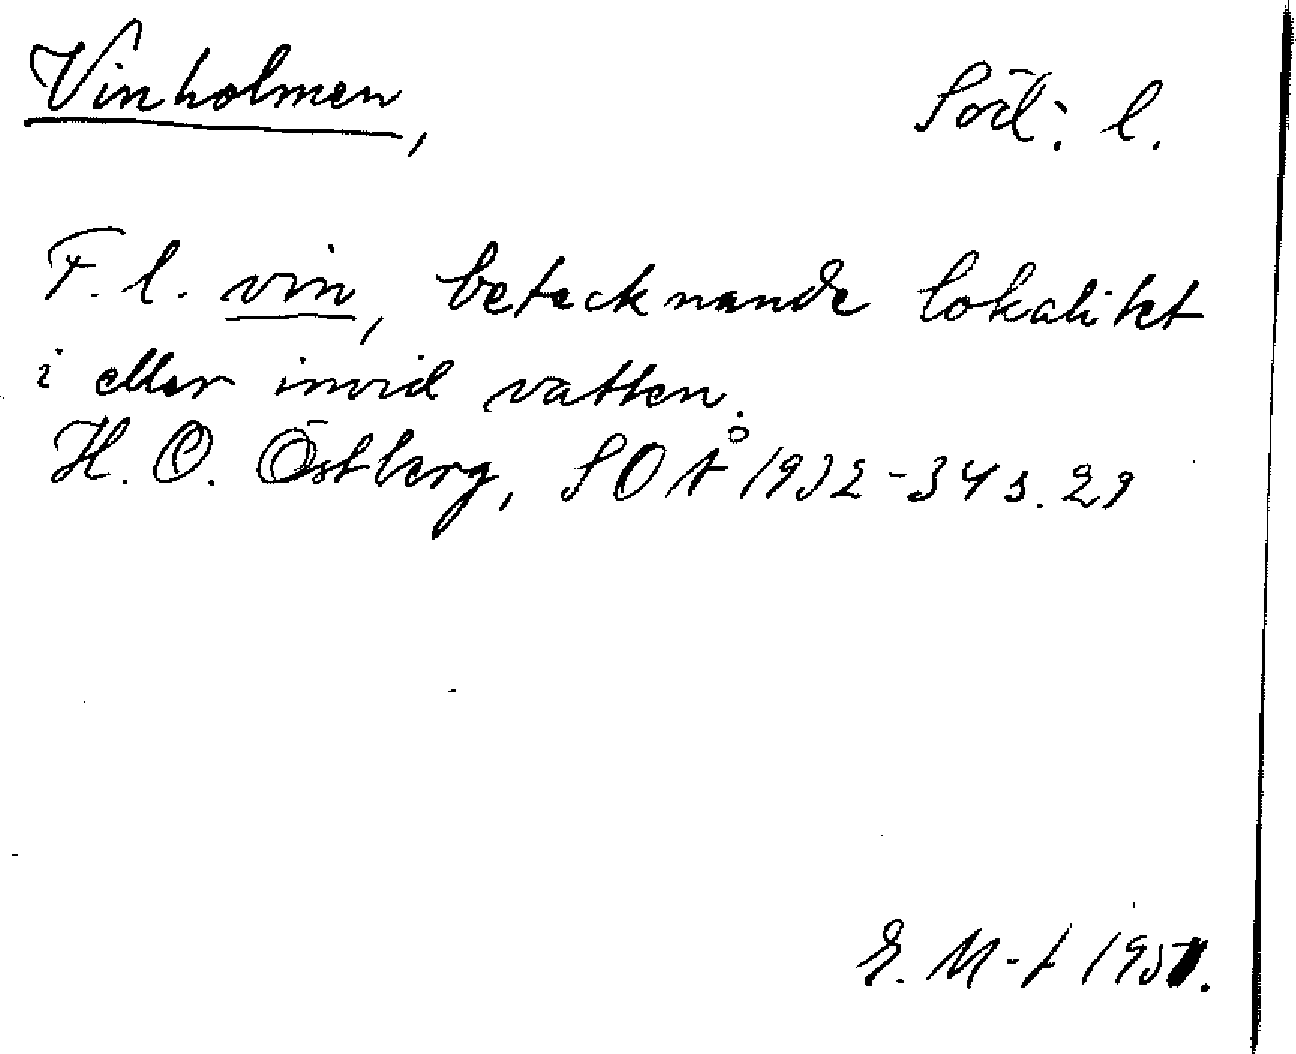 Vinholmen, Södt: l.
F. l. vin, betecknande lokalitet
i eller invid vatten.
H. O. Östberg, SOÅ 1932-34 s. 29
E. M-t 1951.